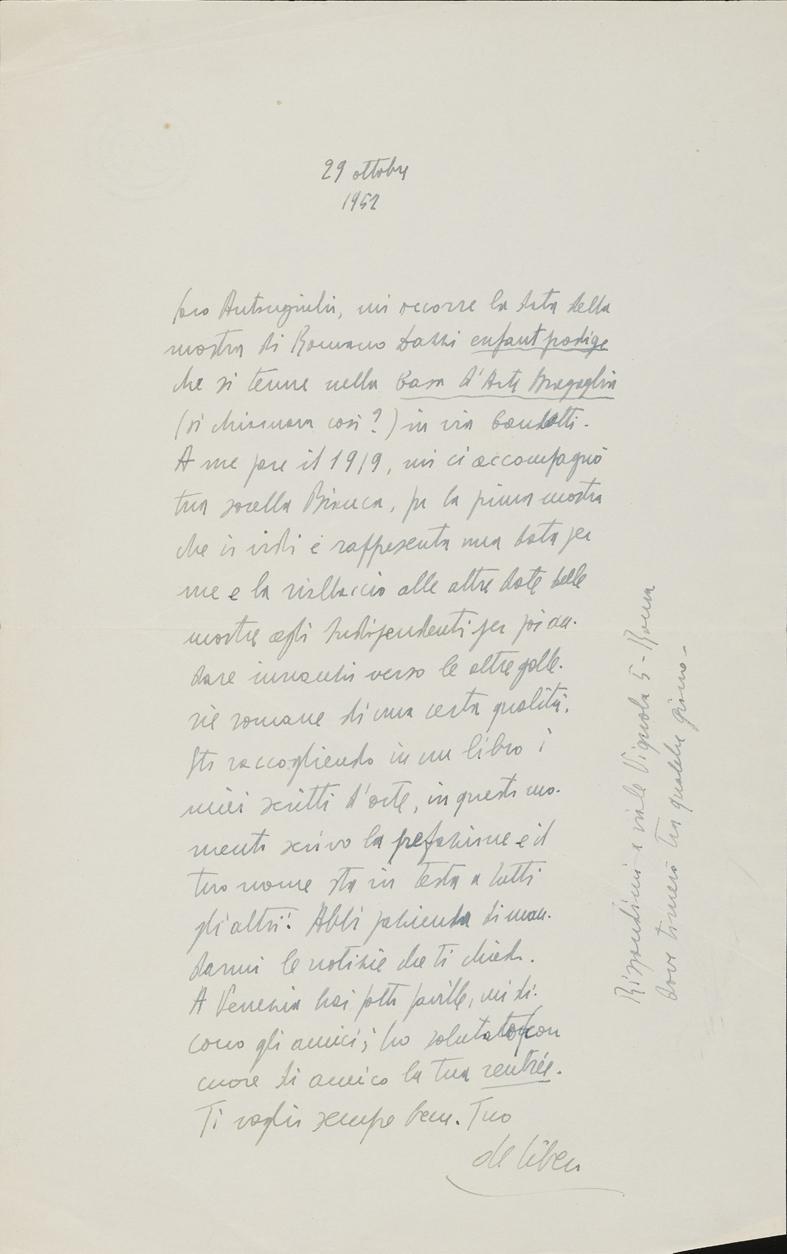 29 ottobre
1952
Caro Antongiulio, mi occorre la data della
mostra di Romano Dazzi enfant prodige
che si tenne nella Casa d'Arte Bragaglia
(si chiamava così?) in via Condotti.
A me pare il 1919, mi ci accompagnò
tua sorella Bianca, fu la prima mostra
che io vidi e rappresenta una data per
me e la riallaccio alle altre date delle
mostre agli Indipendenti per poi an-
dare innanzi verso le altre galle-
rie romane di una certa qualità.
Sto raccogliendo in un libro i
miei scritti d'arte, in questi mo-
menti scrivo la prefazione e il
tuo nome sta in testa a tutti
gli altri. Abbi pazienza di man-
darmi le notizie che ti chiedo.
A Venezia hai fatto faville, mi di-
cono gli amici; ho salutato con
cuore di amico la tua rentrée.
Ti voglio sempre bene. Tuo
de Libero
Rispondimi a viale Vignola 5 - Roma
dove tornerò tra qualche giorno -